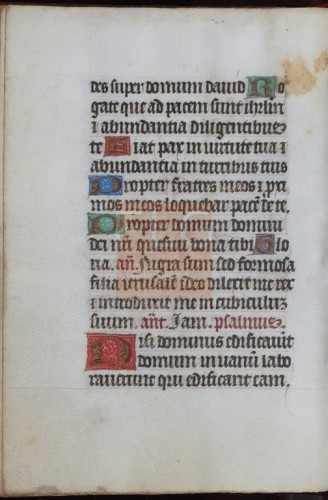 des super domum dauid Ro
gate que ad pacem sunt ihrlm
⁊ abundantia diligentibus
te Fiat pax in uirtute tua ⁊
abundantia in turribus tuis
Propter fratres meos ⁊ pxi
mos meos loquebar pacē de te.
Propter domum domini
dei nrī quesiui bona tibi Glo
ria. añ. Nigra sum sed formosa
filia ierusalē ideo dilexit me rex
⁊ introduxit me in cubiculuz
suum. añt. Iam. psalmus.
Nisi dominus edificauit
domum in uanū labo
rauerunt qui edificant eam.